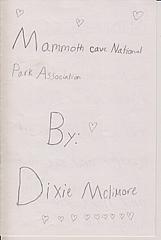 Mammoth cave National
Park Association
By:
Dixie McLimore